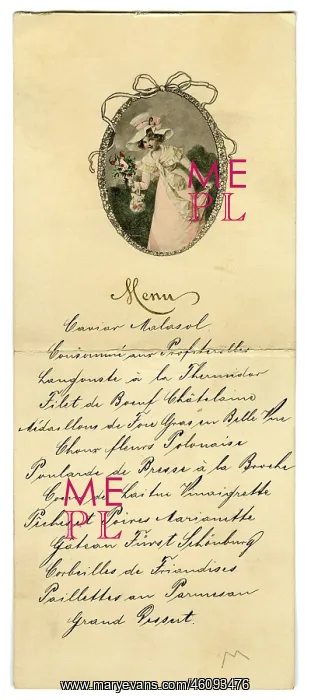 ME
PL
Menu
Caviar Malasol
Consommé aux Profiterolles
Langouste à la Thermidor
Filet de Boeuf Châtelaine
Médaillons de Foie Gras en Belle Vue
Choux fleurs Polonaise
Poularde de Bresse à la Broche
ME
Laitue Vinaigrette
PL
Pêches et Poires Mariannette
Gâteau Fürst Schönburg
Corbeilles de Friandises
Paillettes au Parmesan
Grand Dessert.
www.maryevans.com/46093476